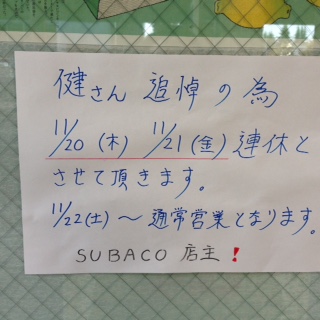 健さん 追悼の為
11/20（木） 11/21（金）連休と
させて頂きます。
11/22（土）～通常営業となります。
SUBACO 店主！